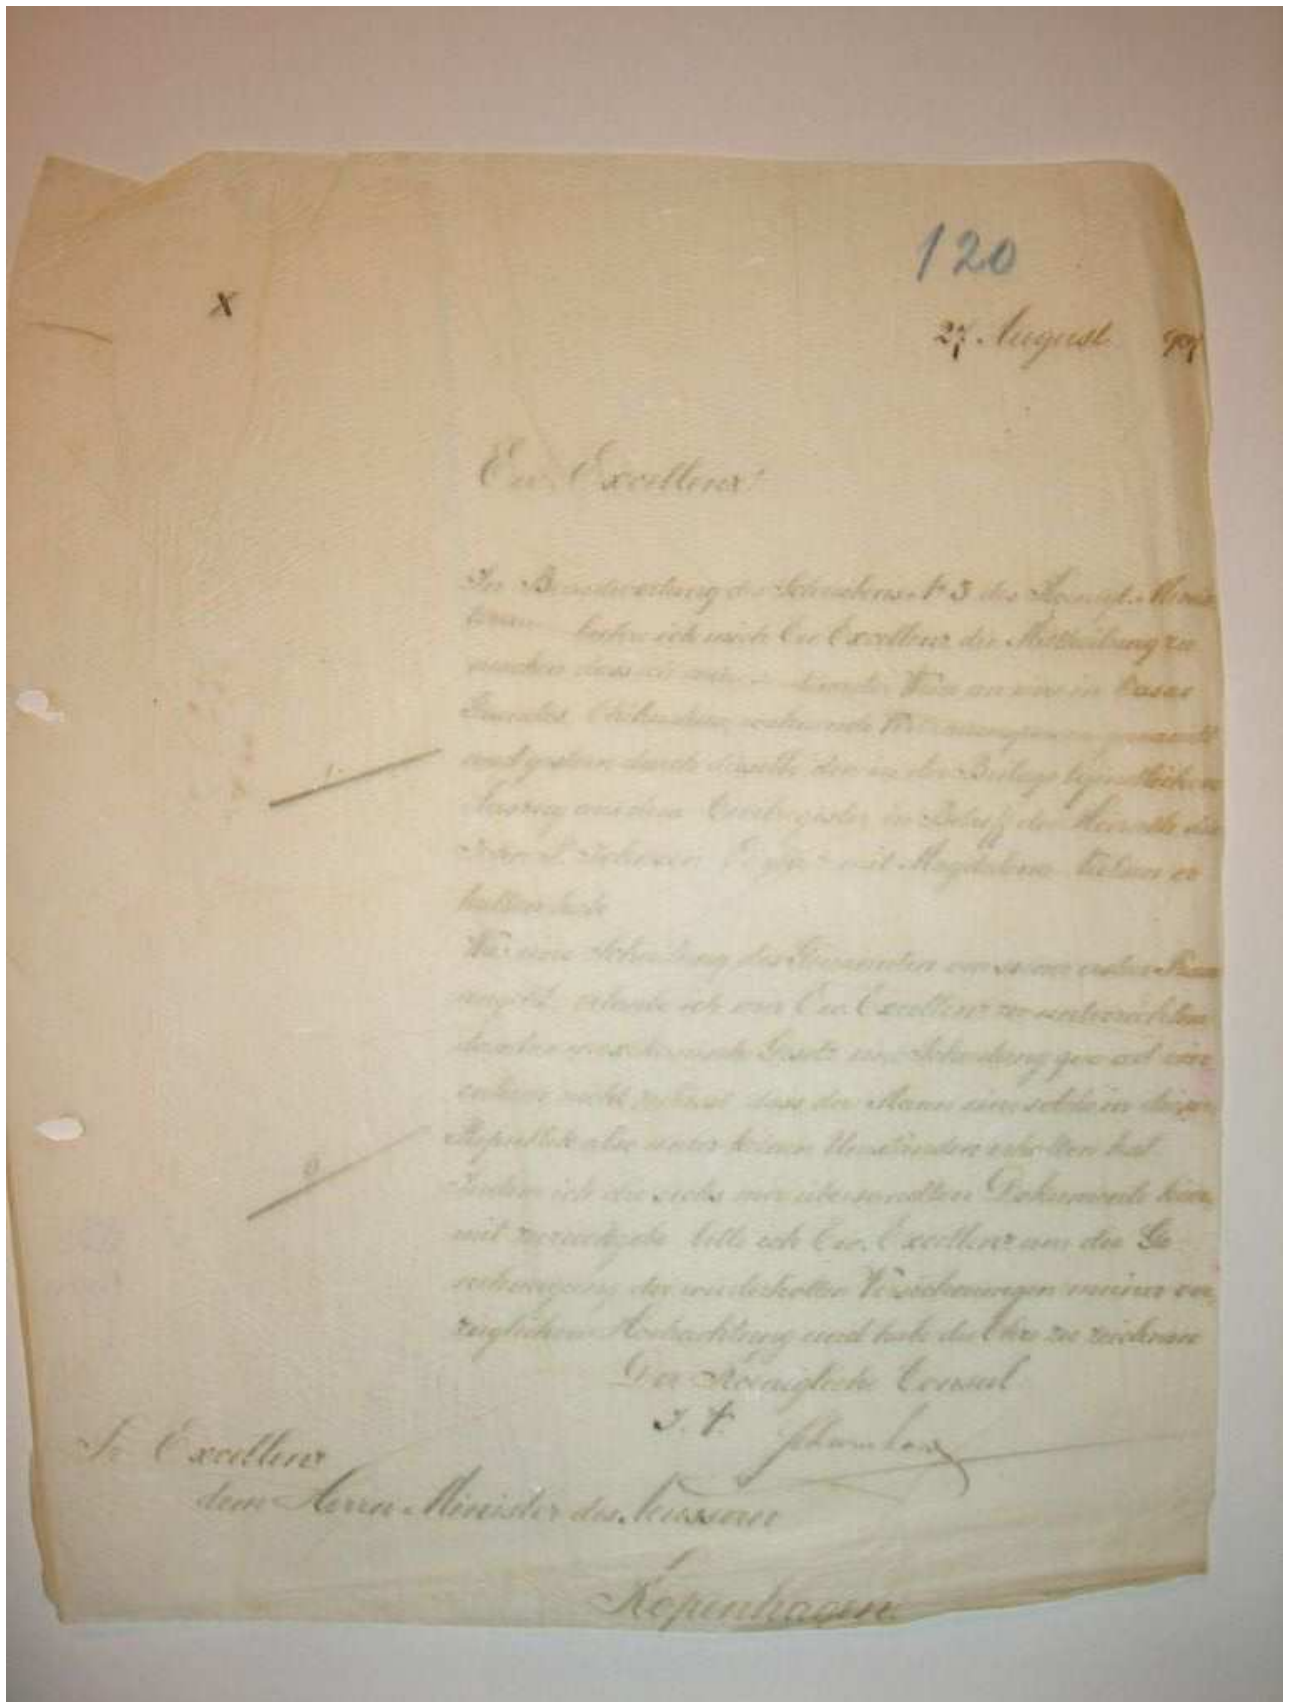 120
X
27. August 907
Ew. Excellenz!
In Beantwortung des Schreibens No 3 des Königl. Minis
beehre ich mich Ew Excellenz die Mittheilung zu
machen dass ich mich an uns in Casas
Grandes, Chihuahua, wohnende
und gestern durch dieselbe den in der Beilage befindlichen
1.
Auszug aus dem Civilregister in Betreff der Heirath des
mit Magdalena er
halten habe
Was eine Scheidung des Genannten von seiner ersten Frau
angeht, erlaube ich mir Ew. Excellenz zu unterrichten
dass das mexikanische Gesetz eine Scheidung quo ad vin
culum nicht zulässt, dass der Mann eine solche in dieser
Republik also unter keinen Umständen erhalten hat.
Indem ich die sechs mir übersandten Dokumente hier,
mit zurückgebe bitte ich Ew. Excellenz um die Ge
nehmigung der wiederholten Versicherungen meiner vor,
züglichen Hochachtung und habe die Ehre zu zeichnen
Der Königliche Consul
I. V.
Sr Excellenz
dem Herrn Minister des Aeussern
Kopenhagen.